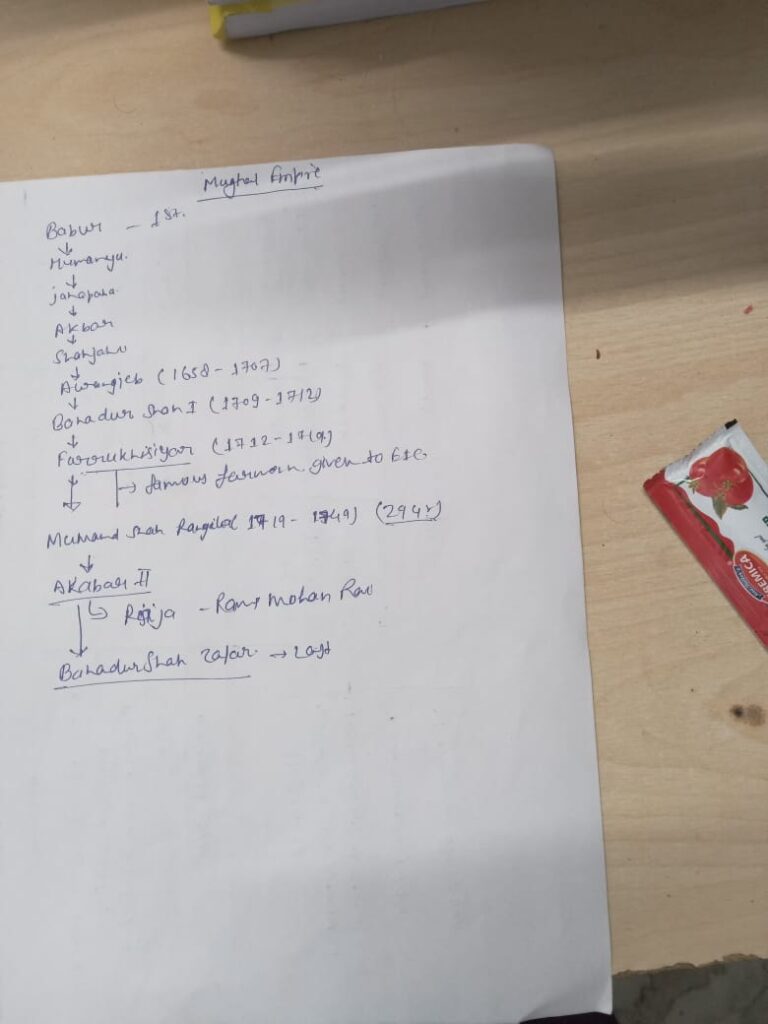 Mughal Empire
Babur - 1st.
Humanyu.
jahapana
Akbar
Shahjahu
Awrangjeb (1658 - 1707)
Bahadur Shah I (1709 - 1712)
Farrukhisiyar (1712 - 1719)
→ famous farman given to EIC
Muhamd Shah Rangila (1719 - 1749) (29 Yr)
Akabar II
Raja - Ram Mohan Rai
Bahadur Shah Zafar → Last
CREMICA